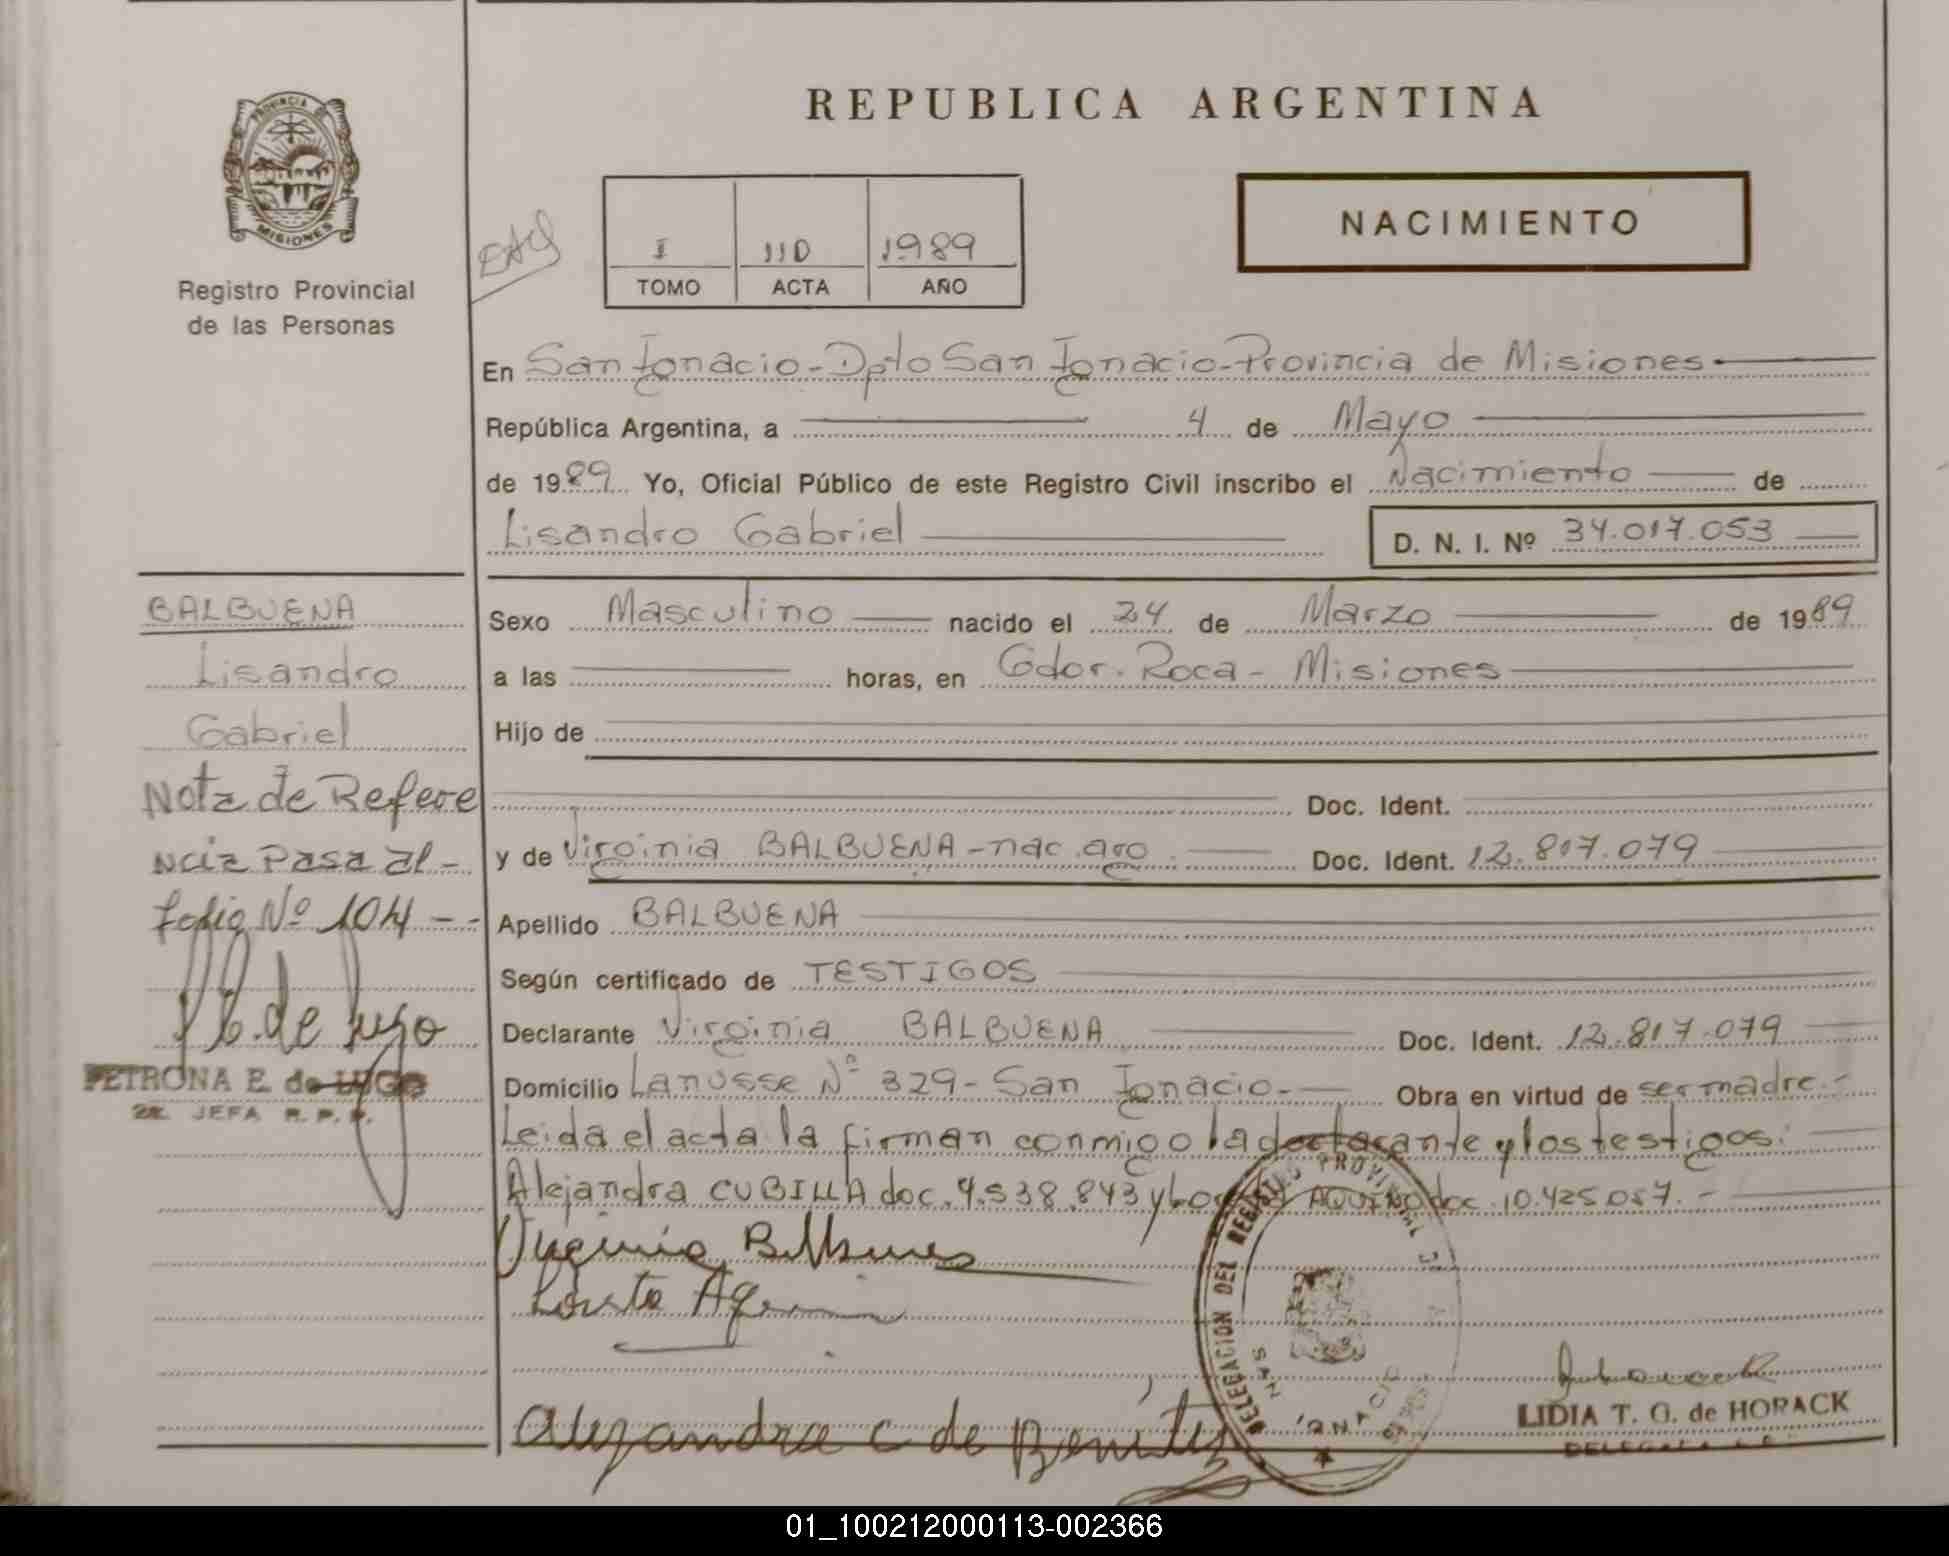 REPUBLICA ARGENTINA
PROVINCIA
MISIONES
Registro Provincial
de las Personas
I 110 1989
TOMO ACTA AÑO
NACIMIENTO
En San Ignacio-Dpto San Ignacio-Provincia de Misiones-
República Argentina, a 4 de Mayo
de 1989 Yo, Oficial Público de este Registro Civil inscribo el Nacimiento de
Lisandro Gabriel
D. N. I. Nº 34.017.053
Sexo Masculino nacido el 24 de Marzo de 1989
a las horas, en Gdor. Roca - Misiones
Hijo de
Doc. Ident.
y de Virginia BALBUENA-nac. arg. Doc. Ident. 12.817.079
Apellido BALBUENA
Según certificado de TESTIGOS
Declarante Virginia BALBUENA Doc. Ident. 12.817.079
Domicilio Lanusse Nº 329- San Ignacio- Obra en virtud de ser madre.-
Leida el acta la firman conmigo la declarante y los testigos:
Alejandra CUBILLA doc. 4.538.843 y AQUINO doc. 10.425.057.-
Virginia Balbuena
Alejandra C de Benitez
DELEGACION DEL REGISTRO PROVINCIAL DE
SAN IGNACIO
LIDIA T. G. de HORACK
DELEGADA
BALBUENA
Lisandro
Gabriel
Nota de Refere
ncia Pasa al-
folio Nº 104--
P E. de Lugo
PETRONA E. de LUGO
2a. JEFA R. P. P.
01_100212000113-002366